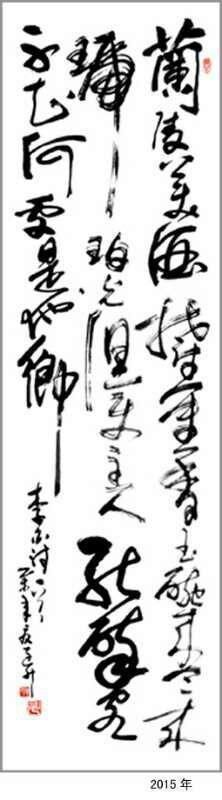 蘭陵美酒鬱金香玉碗盛來
琥珀光但使主人能醉客
不知何處是他鄉
李白詩
2015 年